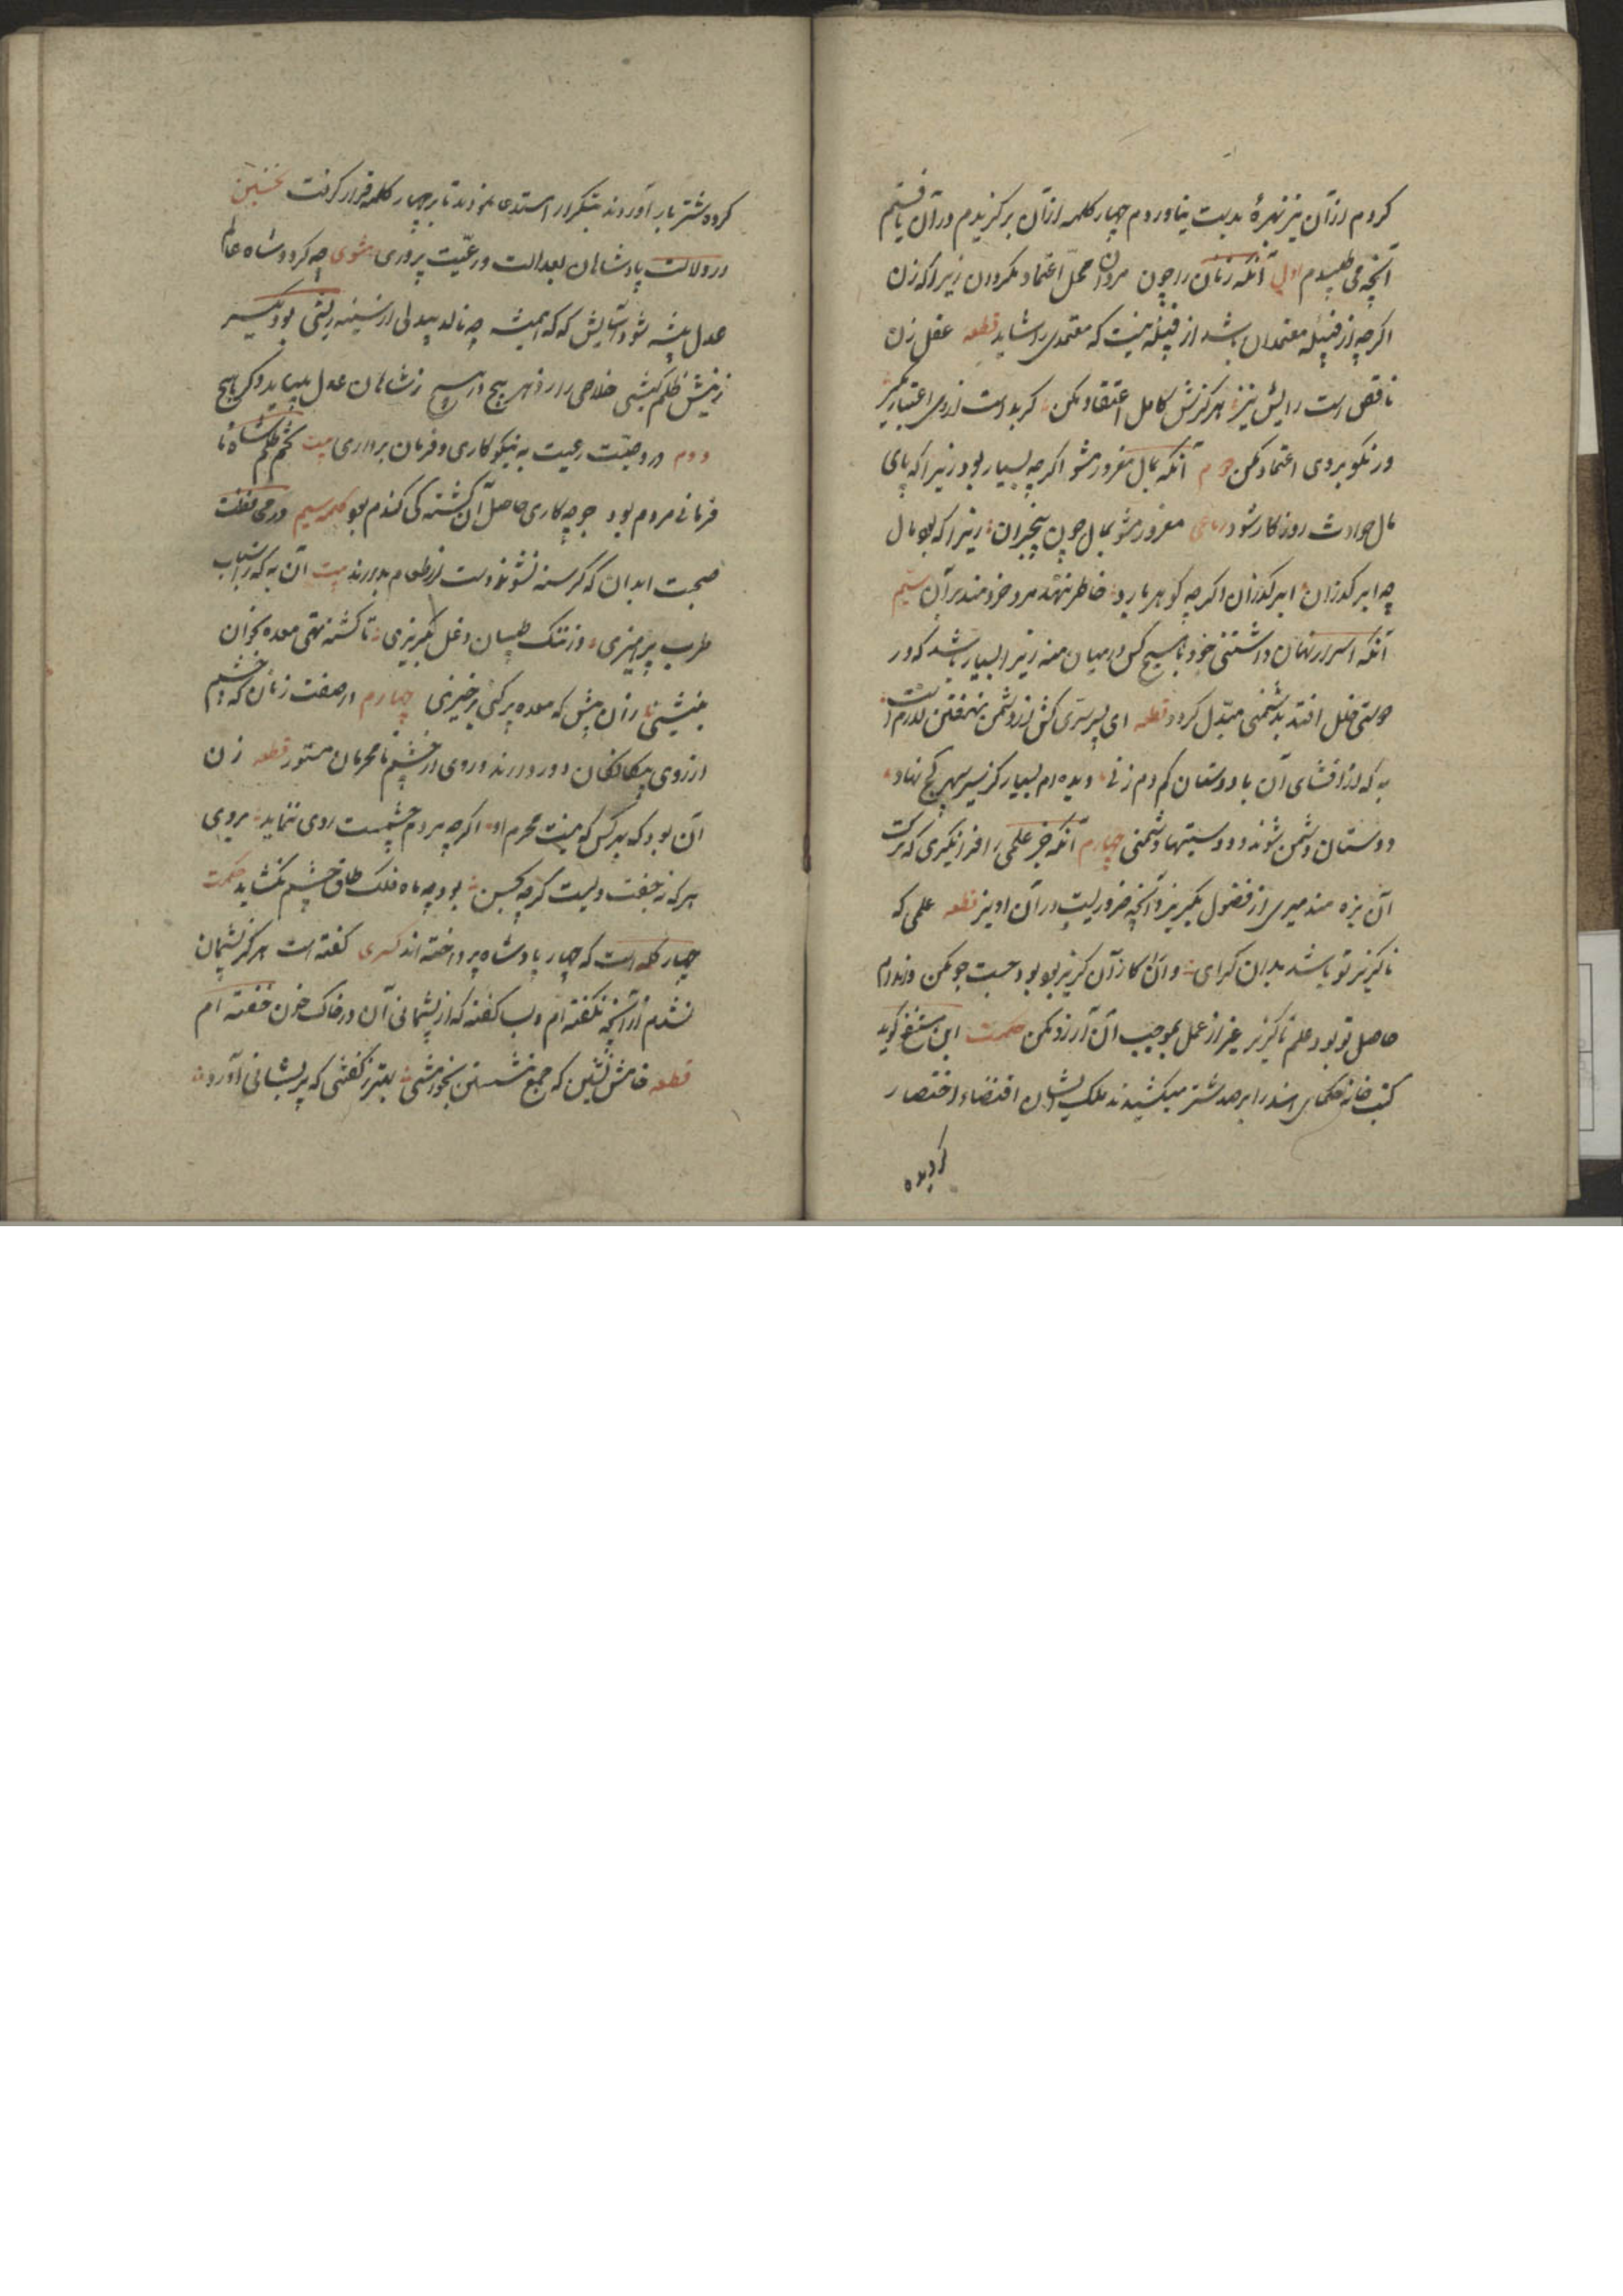 کردم ازان نیز بهرهٔ بدست نیاوردم چهار کلمه ازان برگزیدم و در آن یافتم
آنچه می طلبیدم اول آنکه زنان را چون مردان محل اعتماد مگردان زیرا که زن
اگرچه از قبیله معتمدان باشد از قبیله نیست که معتمدی را شاید قطعه عقل زن
ناقص است و دینش نیز هرگزش کامل اعتقاد مکن گر بد است از وی اعتبار مگیر
ور نکو بر وی اعتماد مکن دوم آنکه بمال مغرور مشو اگرچه بسیار بود زیرا که پای
مال حوادث روزگار شود رباعی مغرور مشو بمال چون بیخبران زیرا که بود مال
چو ابر گذران ابر گذران اگرچه گوهر بارد خاطر ننهد مرد خردمند بر آن سیم
آنکه اسرار نهان داشتنی خود با هیچ کس در میان منه زیرا بسیار باشد که در
دوستی خلل افتد بدشمنی مبدل گردد قطعه ای پسر سری کش از دشمن نهفتن لازم است
به که از افشای آن با دوستان کم دم زنی دیده ام بسیار کز سیر سپهر کج نهاد
دوستان دشمن شوند و دوستیها دشمنی چهارم آنکه جز علمی را فرا نگیری که بترک
آن بزه مند میری از فضول بگریز و آنچه ضروریست در آن آویز قطعه علمی که
ناگزیر تو باشد بدان گرای و آنرا کزان گریز بود جست و جو مکن وندم
حاصل تو بود علم ناگزیر غیر از عمل بموجب آن آرزو مکن حکمت ابن مقفع گوید
کتب خانه حکمای هند را بر صد شتر میکشیدند ملک ایشان اقتضاء اختصار
کردند
کرده شتر بار آوردند بتکرار استدعا نمودند تا بر چهار کلمه قرار گرفت نخستین
در دلالت پادشاهان بعدالت و رعیت پروری مثنوی چو گردد شاه عالم
عدل پیشه شود آسایش که همیشه چو نالد بیدلی از سینه ریشی بود کیسر
زنیش ظلم کیشی خلاصی را از هر پیچ در پیچ ز شاهان عدل میباید دگر هیچ
دوم در وصیت رعیت به نیکو کاری و فرمان برداری بیت تخم ظلم شاه نا
فرمانی مردم بود جو چو کاری حاصل آن کشته کی گندم بود کلمه سیم در محافظت
صحت ابدان که گرسنه نشوند دست از طعام بدارند بیت آن به که ز اسباب
طرب پرهیزی وز ننگ طبیبان دغل بگریزی تا گشنه تهی معده بخوان
بنشینی زان پیش که معده پر کنی برخیزی چهارم در صفت زنان که چشم
از روی بیگانگان دور دارند و روی از چشم نامحرمان مستور قطعه زن
آن بود که بهر کس که نیست محرم او اگرچه مردم چشمست روی ننماید بروی
هرکه نه جفت ویست گرچه بحسن بود چو ماه فلک طاق چشم نگشاید حکمت
چهار کلمه است که چهار پادشاه پرداخته اند کسری گفته است هرگز پشیمان
نشدم از آنچه نگفته ام و بسا گفته که از پشیمانی آن در خاک خون خفته ام
قطعه خامش نشین که جمع نشستن بخامشی بهتر ز گفتنی که پریشانی آورد